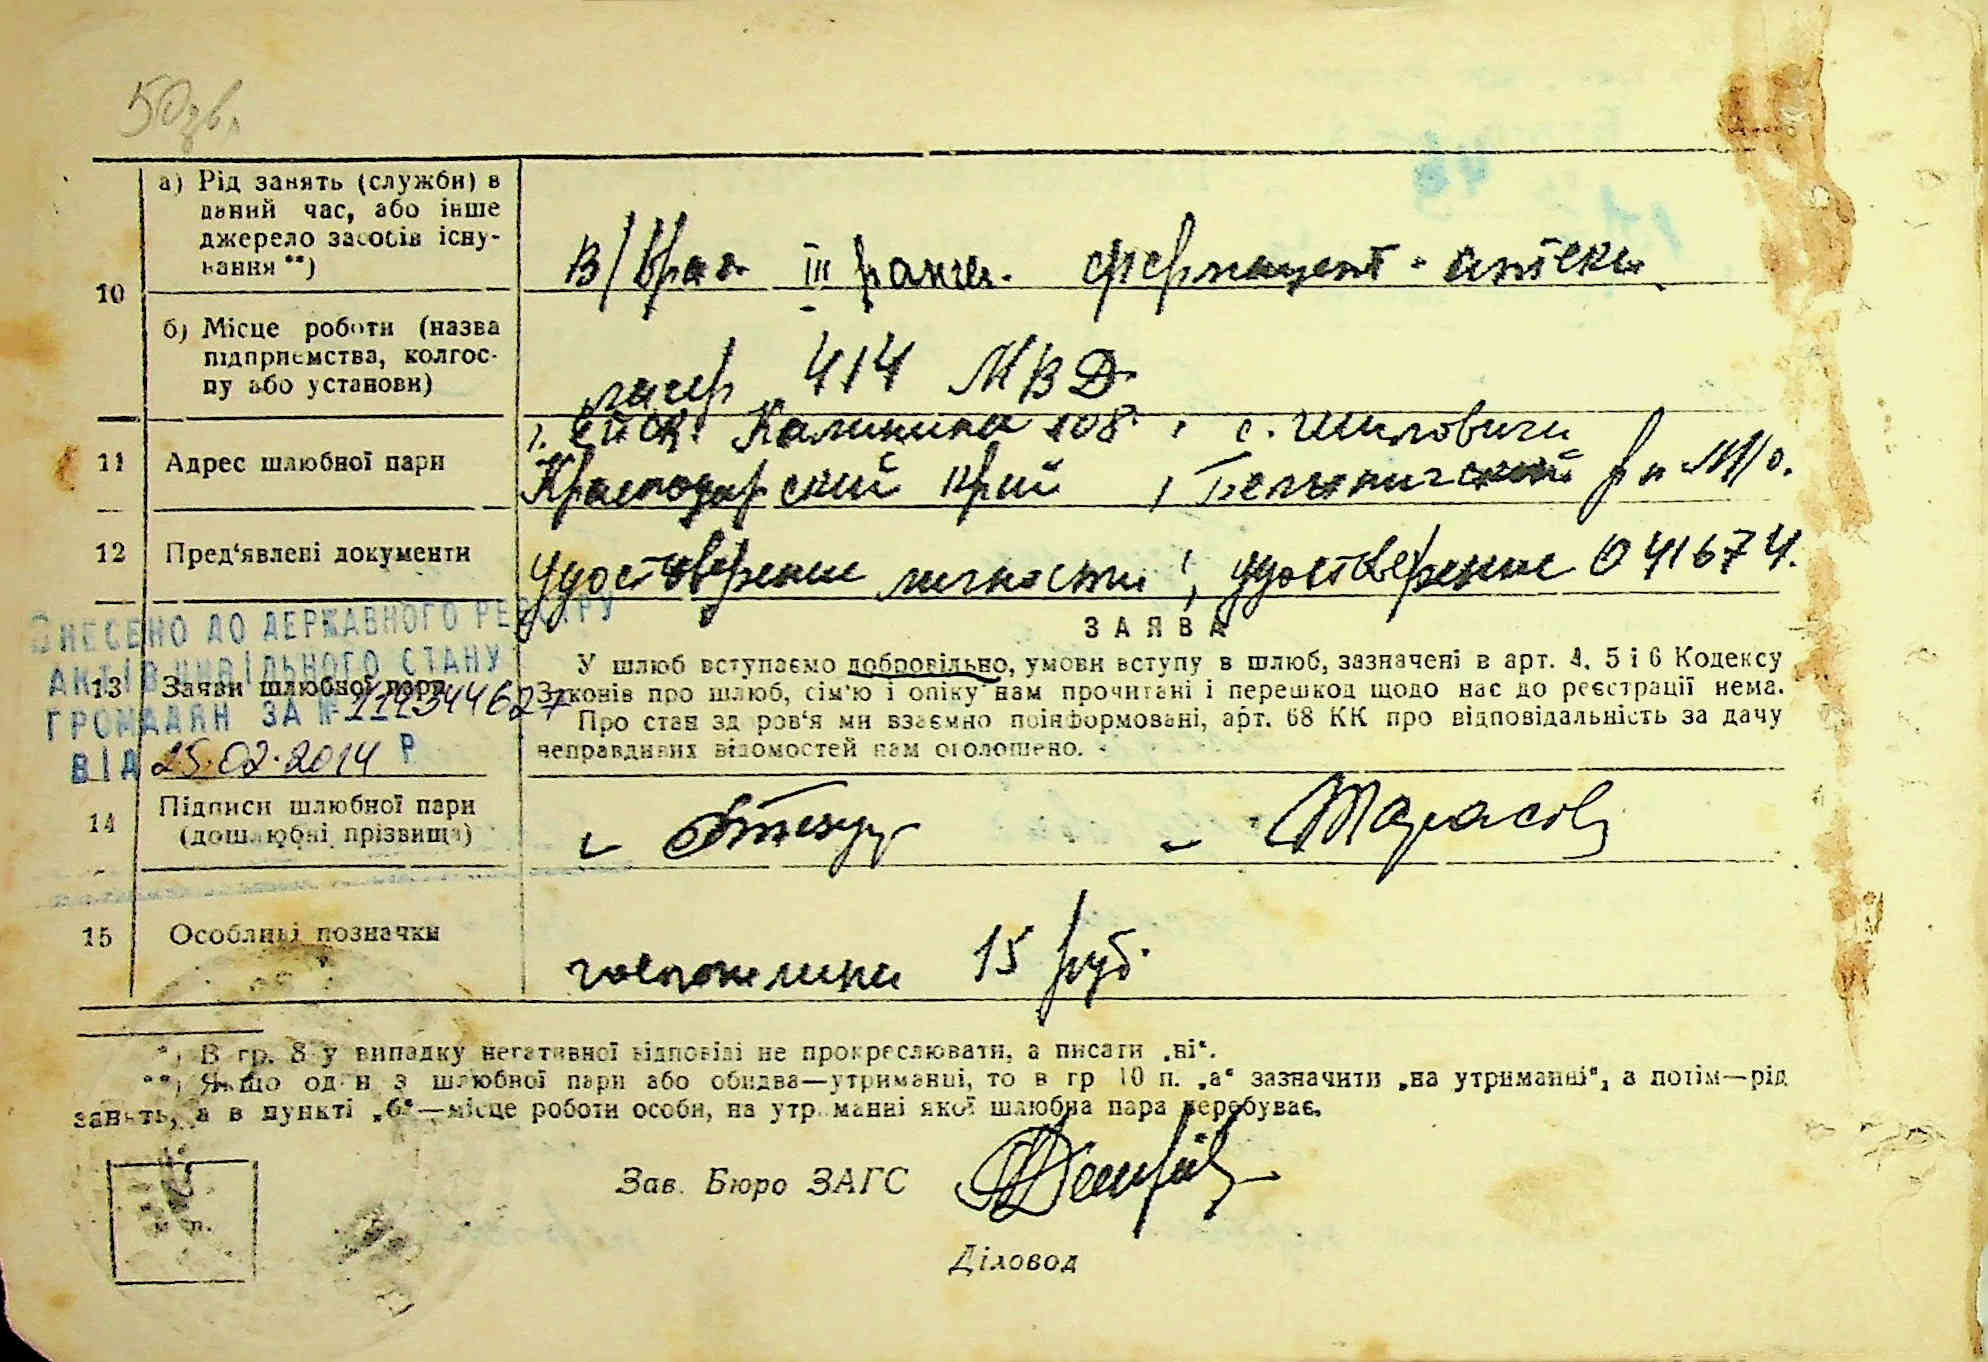 50зв.
10
а) Рід занять (служби) в
даний час, або інше
джерело засобів існу-
вання **)
В/врач III ранга. фармацевт - аптеки
б) Місце роботи (назва
підприємства, колгос-
пу або установи)
лагер 414 МВД
11
Адрес шлюбної пари
г. Ейск. Калинина 108. с. Шиловичи
Краснодарский край, р н М/о.
12
Пред'явлені документи
удостоверение личности, удостоверение 041674.
ВНЕСЕНО ДО ДЕРЖАВНОГО РЕЄСТРУ
АКТІВ ЦИВІЛЬНОГО СТАНУ
ГРОМАДЯН ЗА №
ВІД 25.02.2014 Р
13
Заяви шлюбної пари
ЗАЯВА
У шлюб вступаємо добровільно, умови вступу в шлюб, зазначені в арт. 4, 5 і 6 Кодексу
Законів про шлюб, сім'ю і опіку нам прочитані і перешкод щодо нас до реєстрації нема.
Про стан здоров'я ми взаємно поінформовані, арт. 68 КК про відповідальність за дачу
неправдивих відомостей нам оголошено.
14
Підписи шлюбної пари
(дошлюбні прізвища)
Тарасов
15
Особливі позначки
госпошлина 15 руб.
*) В гр. 8 у випадку негативної відповіді не прокреслювати, а писати „ні“.
**) Якщо один з шлюбної пари або обидва—утриманці, то в гр 10 п. „а“ зазначити „на утриманні“, а потім—рід
занять, а в пункті „б“—місце роботи особи, на утриманні якої шлюбна пара перебуває.
Зав. Бюро ЗАГС
м. п.
Діловод